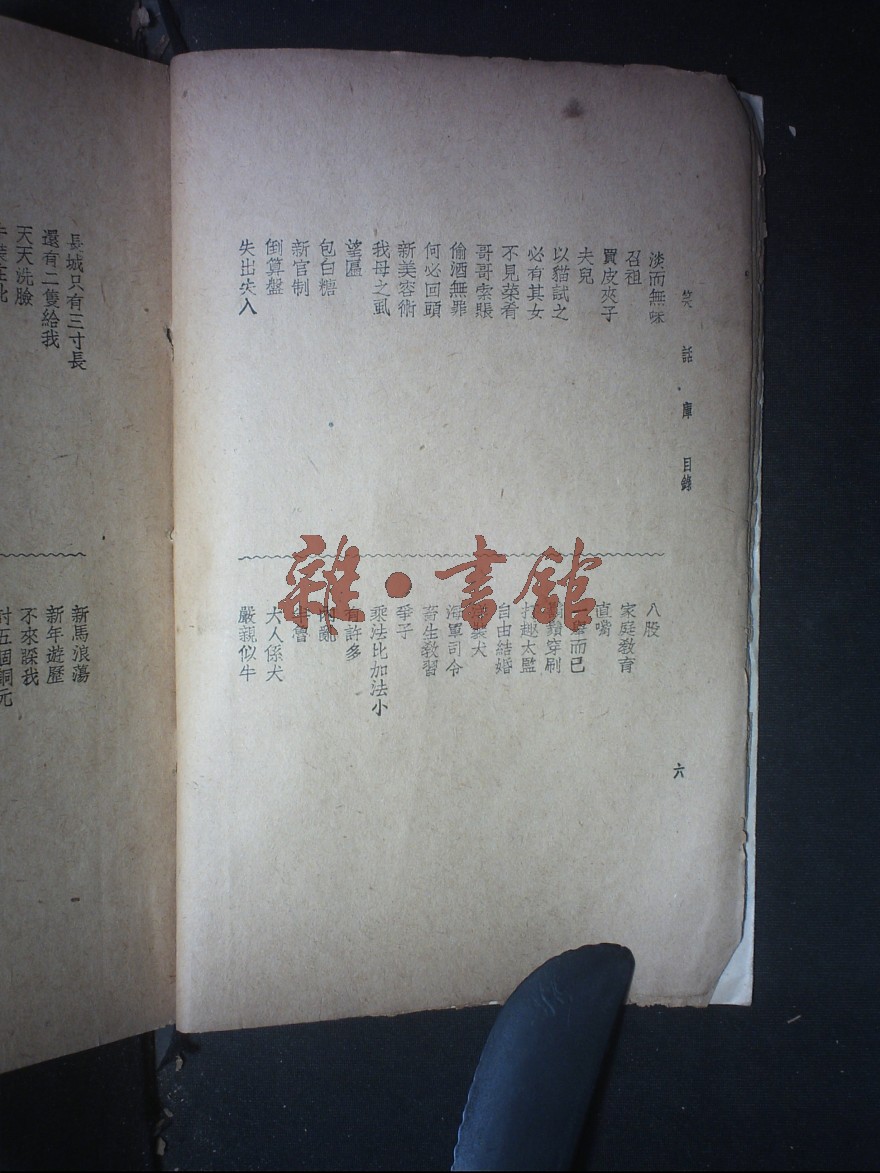 笑話庫 目錄
淡而無味
召祖
買皮夾子
夫兒
以貓試之
必有其女
不見菜肴
哥哥索賬
偷酒無罪
何必回頭
新美容術
我母之虱
望匾
包白糖
新官制
倒算盤
失出失入
八股
家庭教育
直嘴
而已
穿刷
打趣太監
自由結婚
犬
海軍司令
畜生教習
乘子
乘法比加法小
有許多
內亂
大人係犬
嚴親似牛
六
長城只有三寸長
還有二隻給我
天天洗臉
新馬浪蕩
新年遊歷
不來睬我
討五個銅元
雜·書館